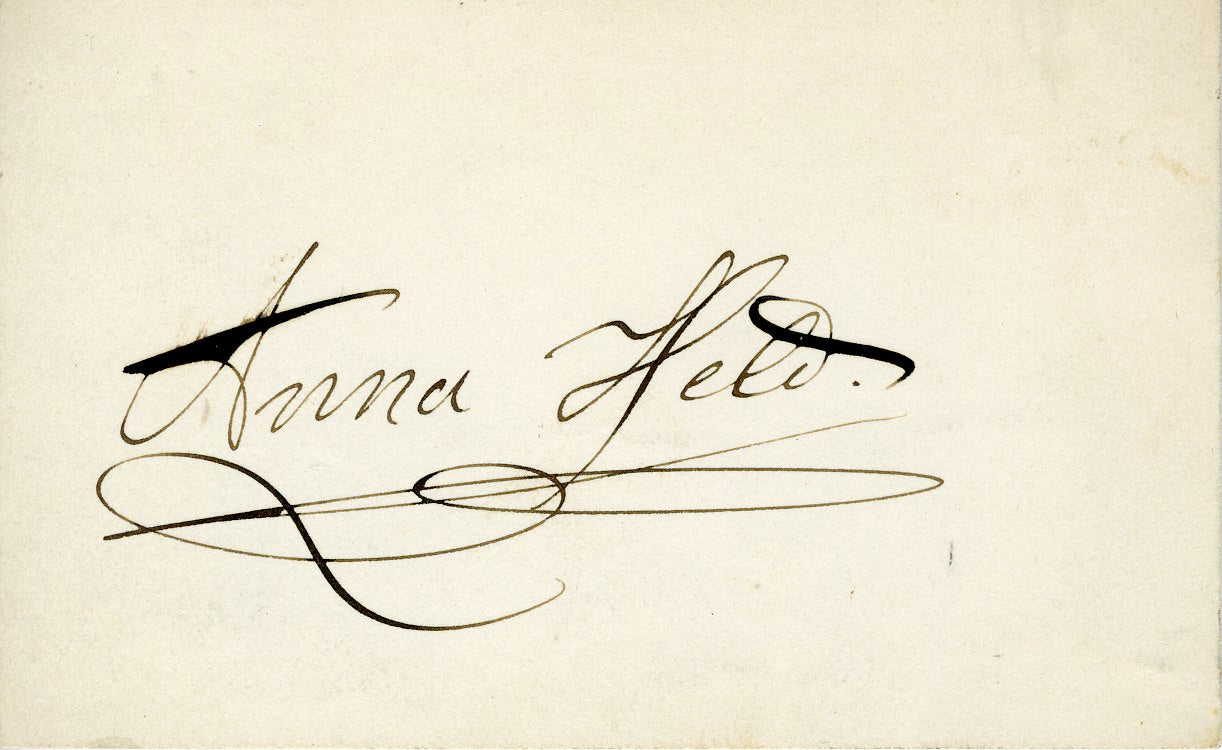 Anna Held.